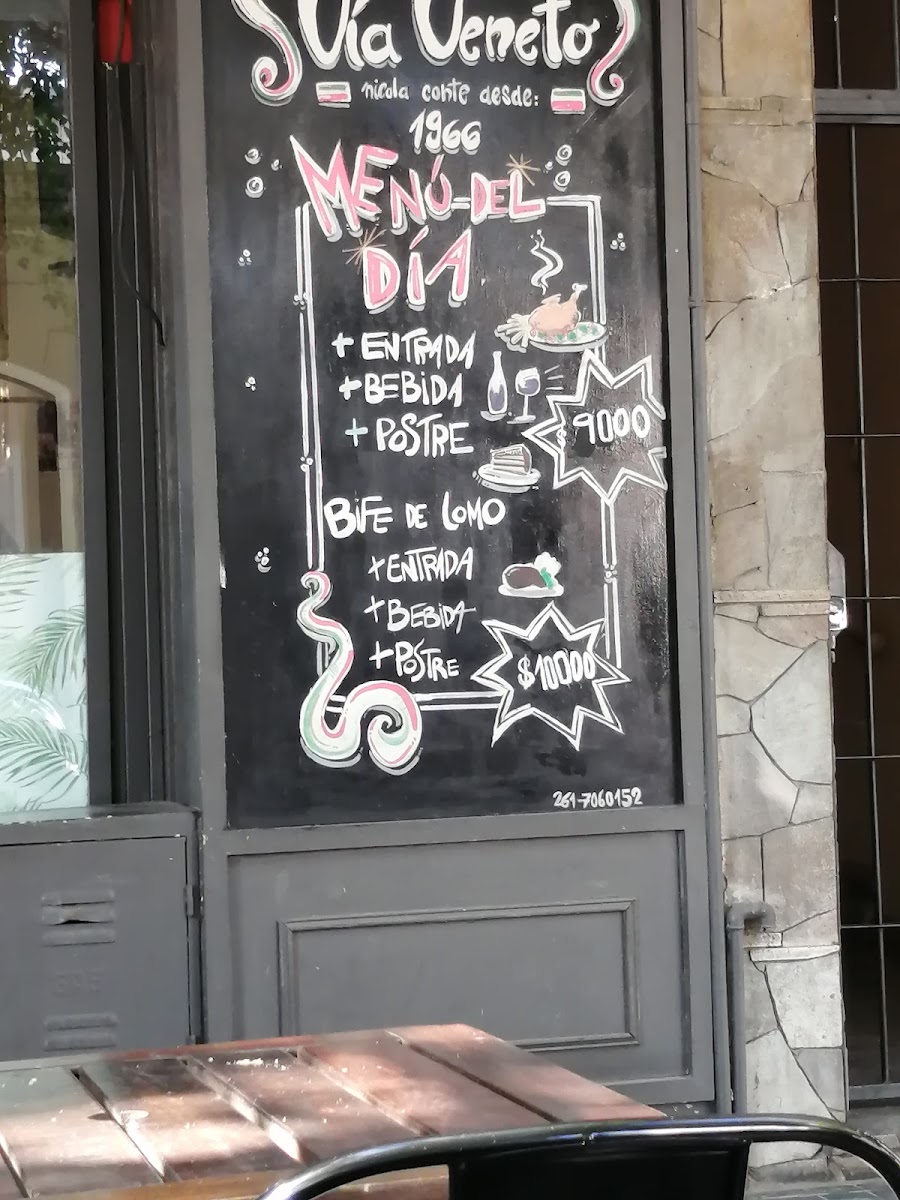 Vía Veneto
nicola conte desde:
1966
MENÚ DEL
DÍA
+ ENTRADA
+ BEBIDA
+ POSTRE
$ 9000
BIFE DE LOMO
+ ENTRADA
+ BEBIDA
+ POSTRE
$10000
261-7060152